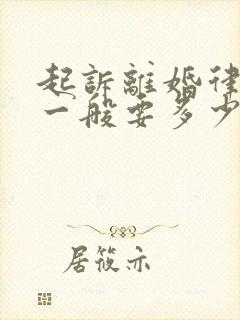 起訴離婚律
一般要多少
居筱亦